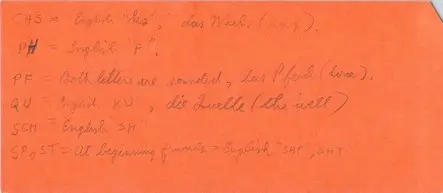 CHS = English "ks", das Wachs (wax).
PH = English "F".
PF = Both letters are sounded, das Pferd (horse).
QU = English KV, die Quelle (the well)
SCH = English SH"
SP, ST = At beginning of words = English "SHP, SHT